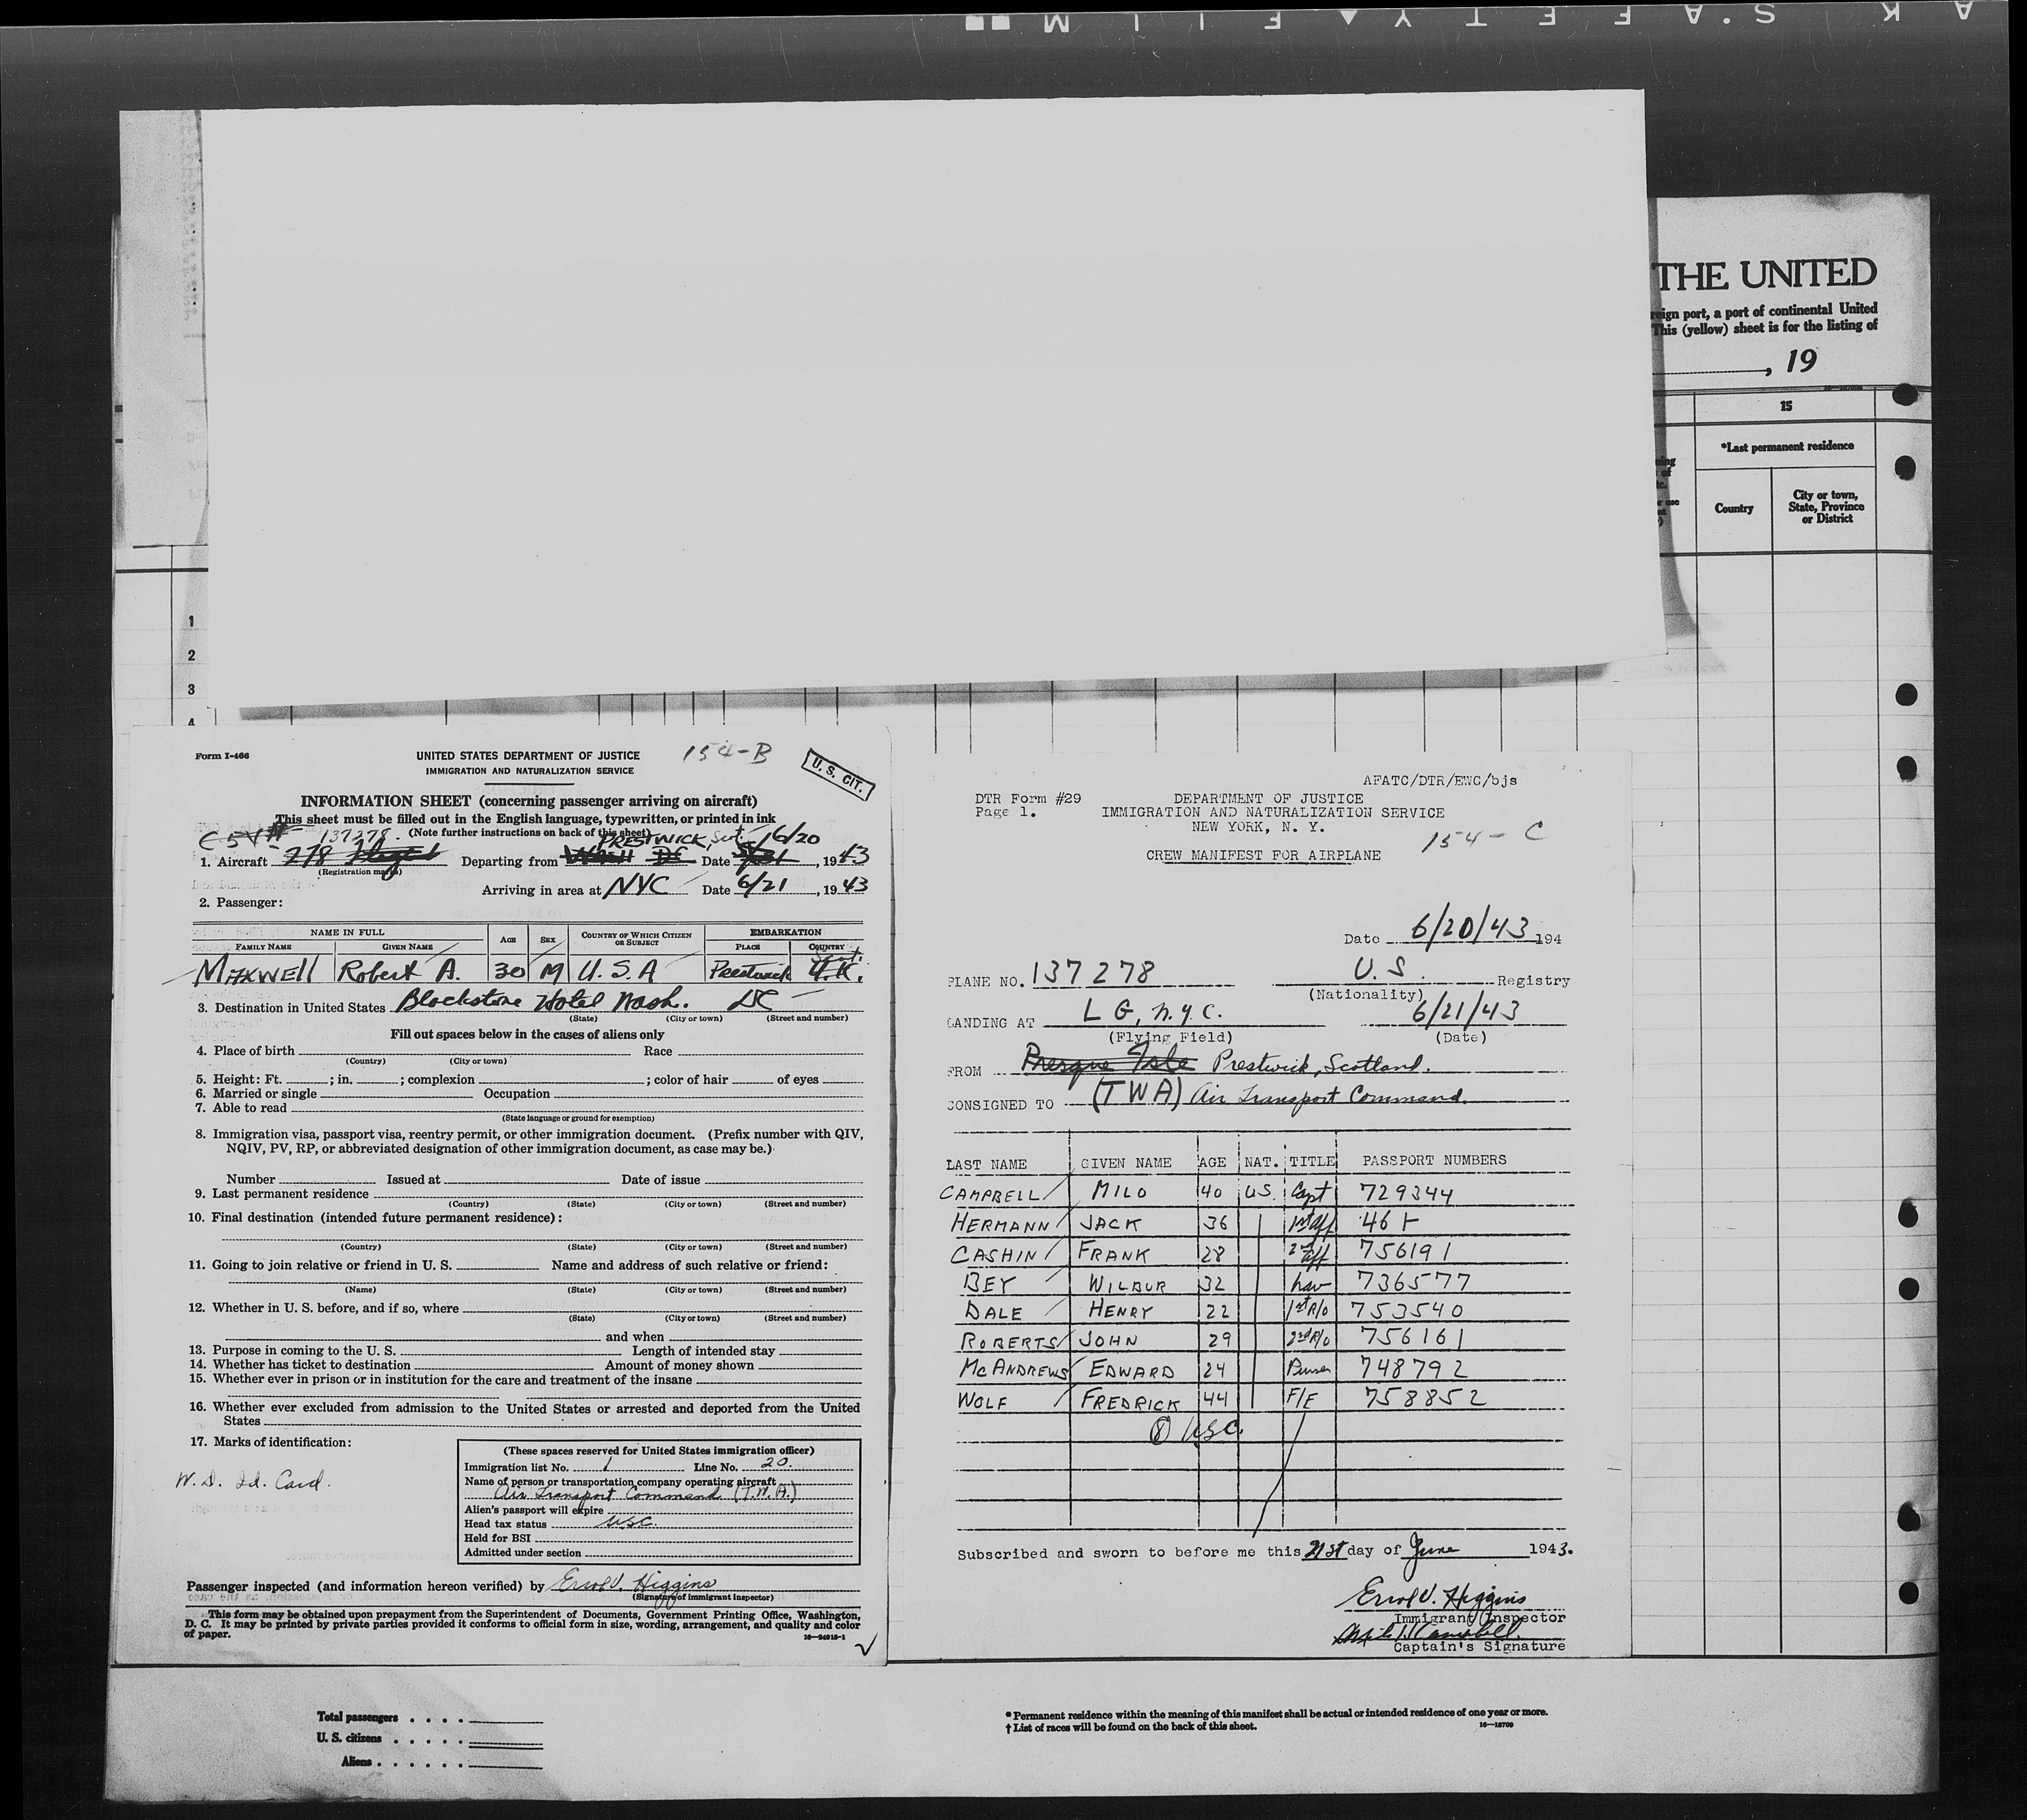 K S.AFETY▲FILM ■■
THE UNITED
reign port, a port of continental United
This (yellow) sheet is for the listing of
, 19
15
*Last permanent residence
Country
City or town,
State, Province
or District
1
2
3
4
Form I-466
UNITED STATES DEPARTMENT OF JUSTICE
154-B
U. S. CIT.
IMMIGRATION AND NATURALIZATION SERVICE
INFORMATION SHEET (concerning passenger arriving on aircraft)
This sheet must be filled out in the English language, typewritten, or printed in ink
(Note further instructions on back of this sheet)
C 54 # 137278. PRESTWICK, Scot. 6/20
1. Aircraft 278 Departing from Wash DC Date , 1943
(Registration marks)
Arriving in area at NYC Date 6/21, 1943
2. Passenger:
NAME IN FULL AGE SEX COUNTRY OF WHICH CITIZEN OR SUBJECT EMBARKATION
FAMILY NAME GIVEN NAME PLACE COUNTRY
Scot.
MAXWELL Robert A. 30 M U.S.A Prestwick U.K.
3. Destination in United States Blackstone Hotel Wash. DC
(State) (City or town) (Street and number)
Fill out spaces below in the cases of aliens only
4. Place of birth Race
(Country) (City or town)
5. Height: Ft. ; in. ; complexion ; color of hair of eyes
6. Married or single Occupation
7. Able to read
(State language or ground for exemption)
8. Immigration visa, passport visa, reentry permit, or other immigration document. (Prefix number with QIV,
NQIV, PV, RP, or abbreviated designation of other immigration document, as case may be.)
Number Issued at Date of issue
9. Last permanent residence
(Country) (State) (City or town) (Street and number)
10. Final destination (intended future permanent residence):
(Country) (State) (City or town) (Street and number)
11. Going to join relative or friend in U. S. Name and address of such relative or friend:
(Name) (State) (City or town) (Street and number)
12. Whether in U. S. before, and if so, where
(State) (City or town) (Street and number)
and when
13. Purpose in coming to the U. S. Length of intended stay
14. Whether has ticket to destination Amount of money shown
15. Whether ever in prison or in institution for the care and treatment of the insane
16. Whether ever excluded from admission to the United States or arrested and deported from the United
States
17. Marks of identification:
W.D. Id. Card.
(These spaces reserved for United States immigration officer)
Immigration list No. 1 Line No. 20.
Name of person or transportation company operating aircraft
Air Transport Command (T.W.A.)
Alien's passport will expire
Head tax status USC.
Held for BSI
Admitted under section
Passenger inspected (and information hereon verified) by Errol V. Higgins
(Signature of immigrant inspector)
This form may be obtained upon prepayment from the Superintendent of Documents, Government Printing Office, Washington,
D. C. It may be printed by private parties provided it conforms to official form in size, wording, arrangement, and quality and color
of paper.
16—24915-1
AFATC/DTR/EWC/bjs
DTR Form #29 DEPARTMENT OF JUSTICE
Page 1. IMMIGRATION AND NATURALIZATION SERVICE
NEW YORK, N. Y.
154 - C
CREW MANIFEST FOR AIRPLANE
Date 6/20/43 194
PLANE NO. 137278 U.S. Registry
(Nationality)
LANDING AT L G, N.Y.C. 6/21/43
(Flying Field) (Date)
FROM Presque Isle Prestwick, Scotland.
CONSIGNED TO (TWA) Air Transport Command.
LAST NAME GIVEN NAME AGE NAT. TITLE PASSPORT NUMBERS
CAMPBELL MILO 40 US. Capt 729344
HERMANN JACK 36 1st Off 46
CASHIN FRANK 28 2nd Off 756191
BEY WILBUR 32 Nav 736577
DALE HENRY 22 1st R/O 753540
ROBERTS JOHN 29 2nd R/O 756161
McANDREWS EDWARD 24 Purser 748792
WOLF FREDRICK 44 F/E 758852
8 USC.
Subscribed and sworn to before me this 21st day of June 1943.
Errol V. Higgins
Immigrant Inspector
Milo H Campbell
Captain's Signature
Total passengers . . . .
U. S. citizens . . . . .
Aliens . . . . . .
* Permanent residence within the meaning of this manifest shall be actual or intended residence of one year or more.
† List of races will be found on the back of this sheet.
16—18709